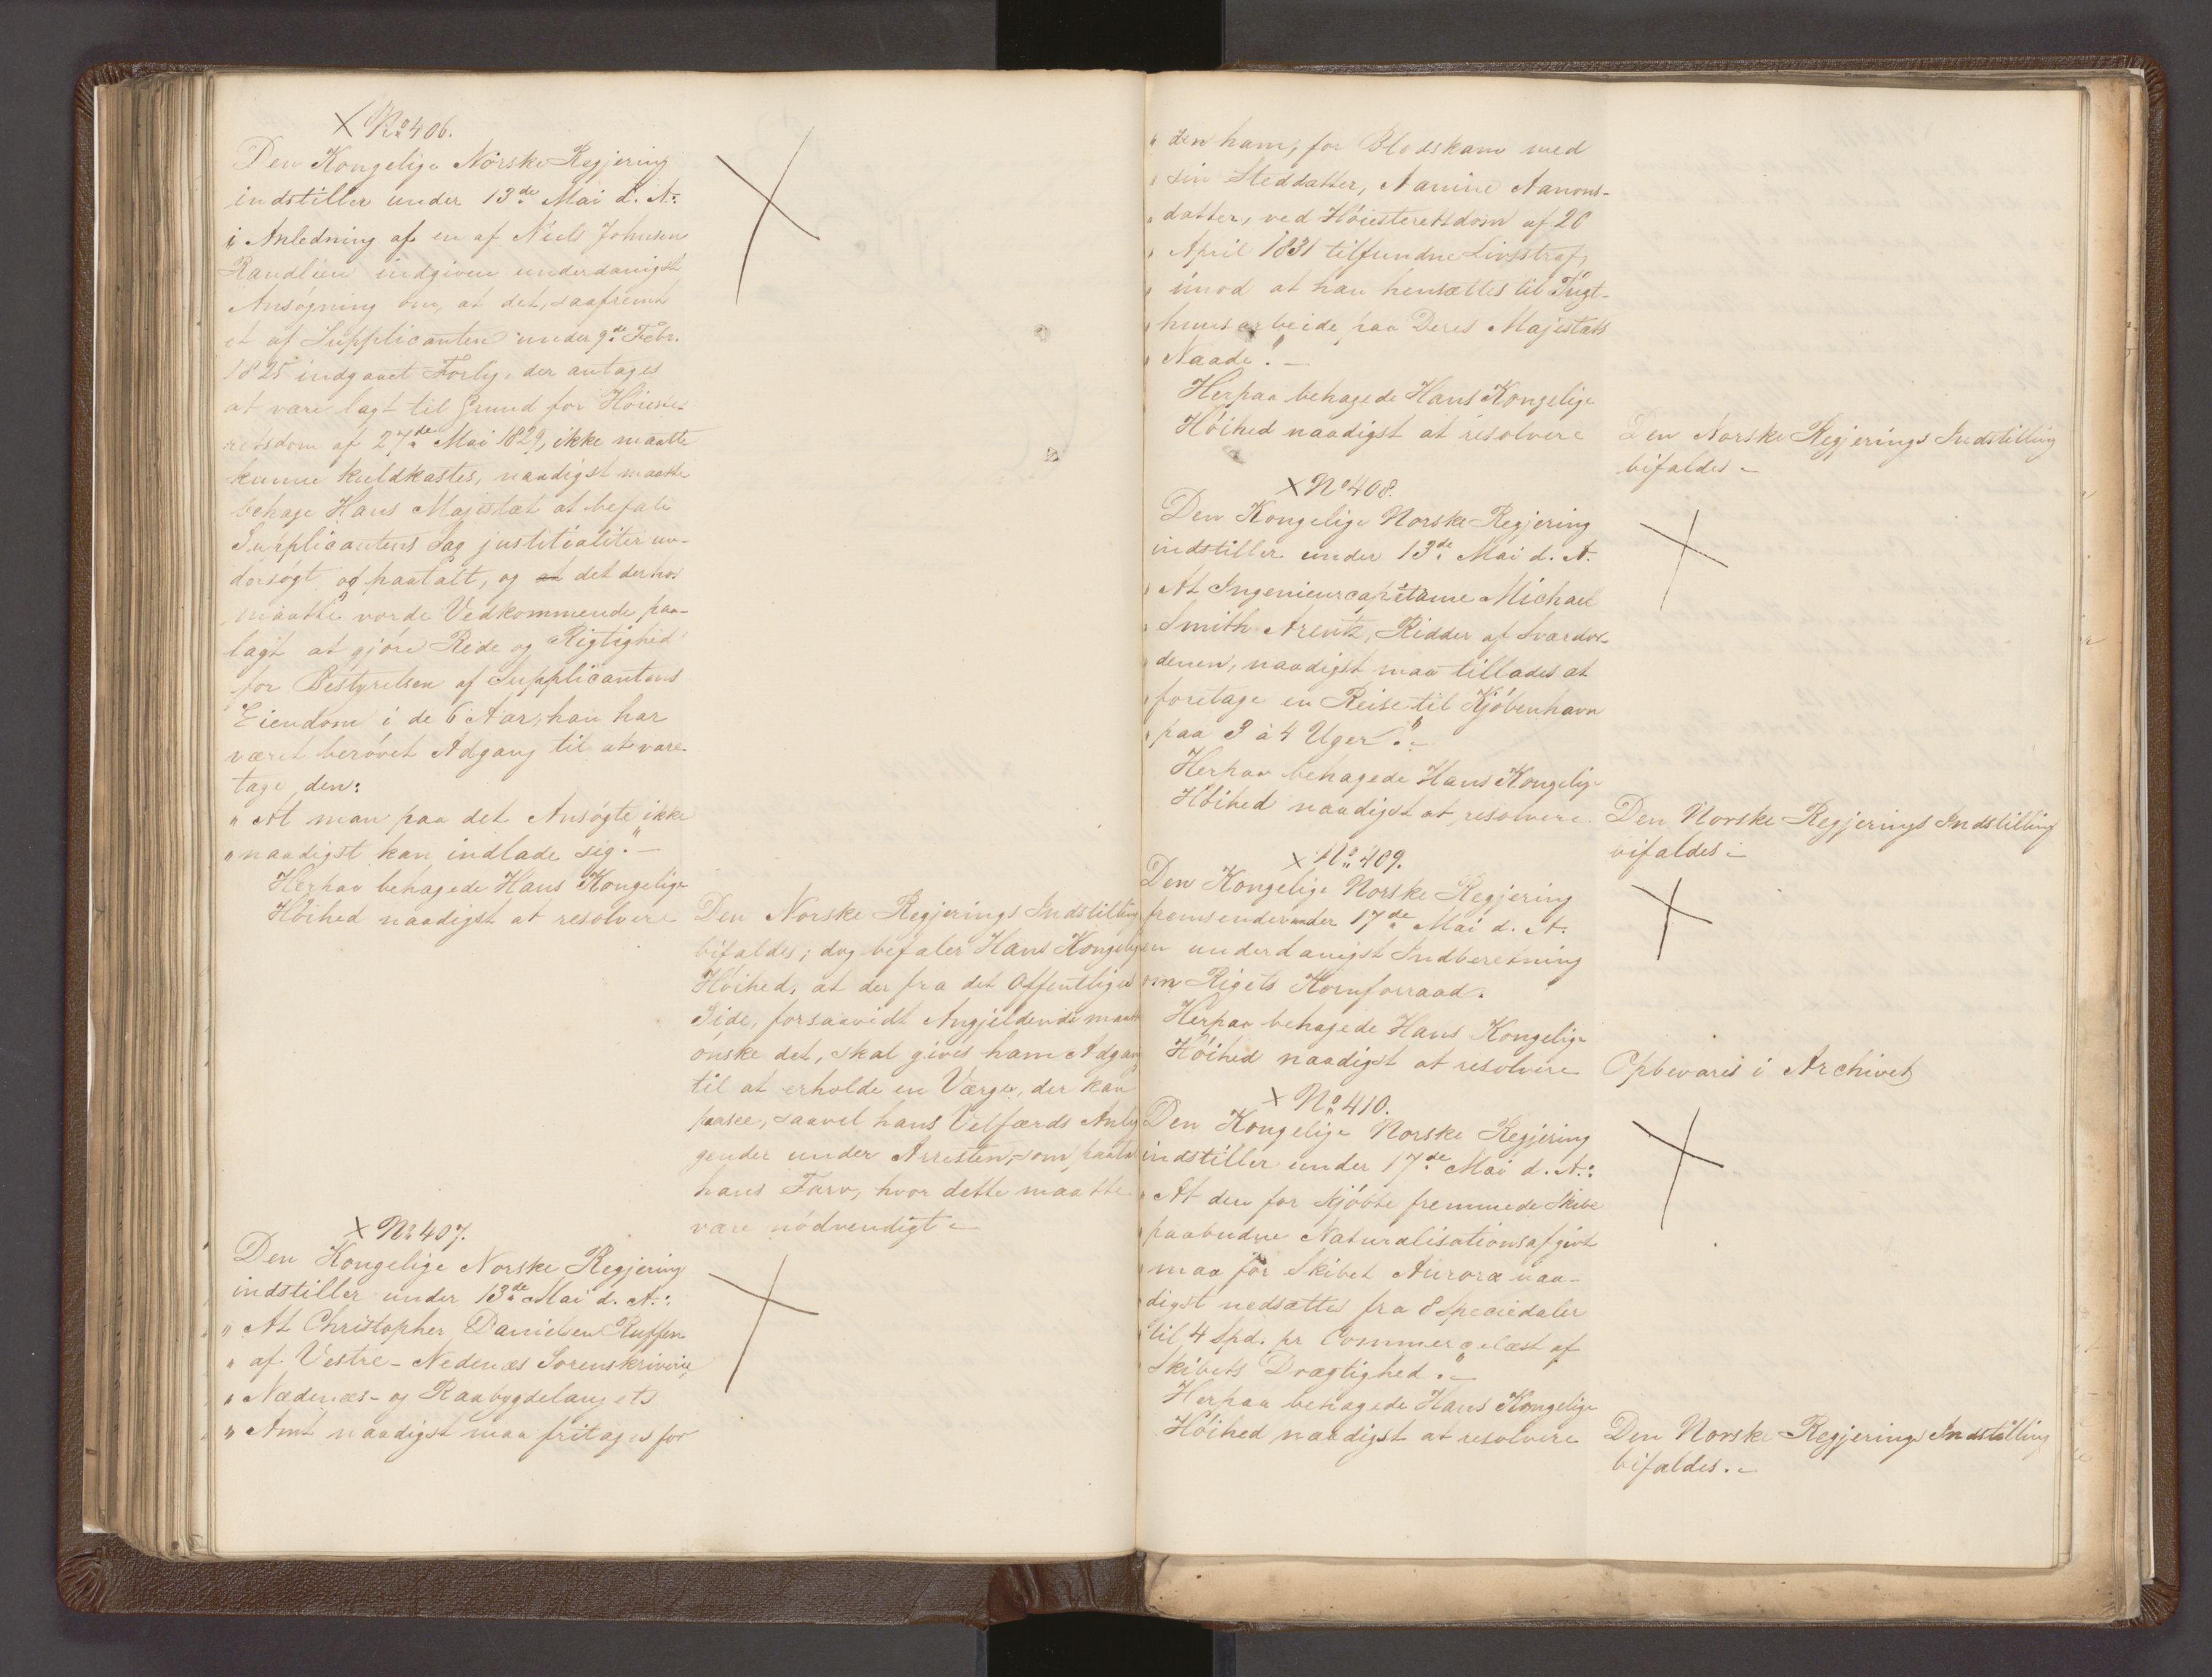 No 406.
Den Kongelige Norske Regjering
indstiller under 13de Mai d. A.
i Anledning af en af Niels Johnsen
Randlien indgiven underdanigst
Ansøgning om, at det, saafremt
et af Supplicanten under 9de Febr.
1825 indgaaet Forlig, der antages
at være lagt til Grund for Høieste-
retsdom af 27de Mai 1829, ikke maatte
kunne kuldkastes, naadigst maatte
behage Hans Majestæt at befale
Supplicantens Sag justitialiter un-
dersøgt og paatalt, og det derhos
maatte vorde Vedkommende paa-
lagt at gjøre Rede og Rigtighed
for Bestyrelsen af Supplicantens
Eiendom i de 6 Aar, han har
været berøvet Adgang til at vare-
tage den:
"At man paa det Ansøgte ikke
"naadigst kan indlade sig."—
Herpaa behagede Hans Kongelige
Høihed naadigst at resolvere
Den Norske Regjerings Indstilling
bifaldes; dog befaler Hans Kongelige
Høihed, at der fra det Offentliges
Side, forsaavidt Angjeldende maatte
ønske det, skal gives ham Adgang
til at erholde en Værge, der kan
paasee, saavel hans Velfærds Anlig
gender under Arresten, som paatale
hans Tarv, hvor dette maatte
være nødvendigt.–
No 407.
Den Kongelige Norske Regjering
indstiller under 13de Mai d. A.:
"At Christopher Danielsen Ruffen
"af Vestre-Nedenæs Sorenskriverie,
"Nedenæs- og Raabygdelaugets
"Amt naadigst maa fritages for
"den ham, for Blodskam med
"sin Steddatter, Aanine Aanons-
"datter, ved Høiesteretsdom af 20
"April 1831 tilfundne Livsstraf,
"imod at han hensættes til Tugt-
"huusarbeide paa Deres Majestæts
"Naade."—
Herpaa behagede Hans Kongelige
Høihed naadigst at resolvere
Den Norske Regjerings Indstilling
bifaldes.–
No 408.
Den Kongelige Norske Regjering
indstiller under 13de Mai d. A.
"At Ingenieurcapitaine Michael
"Smith Arentz, Ridder af Sværdor-
"denen, naadigst maa tillades at
"foretage en Reise til Kjøbenhavn
"paa 3 à 4 Uger."–
Herpaa behagede Hans Kongelige
Høihed naadigst at resolvere.
Den Norske Regjerings Indstilling
bifaldes.–
No 409.
Den Kongelige Norske Regjering
fremsender under 17de Mai d. A.
en underdanigst Indberetning
om Rigets Kornforraad.
Herpaa behagede Hans Kongelige
Høihed naadigst at resolvere
Opbevares i Archivet
No 410.
Den Kongelige Norske Regjering
indstiller under 17de Mai d. A.:
"At den for kjøbte fremmede Skibe
"paabudne Naturalisationsafgivt
"maa for Skibet Aurora naa-
"digst nedsættes fra 8 Speciedaler
"til 4 Spd. pr Commercelæst af
"Skibets Drægtighed."–
Herpaa behagede Hans Kongelige
Høihed naadigst at resolvere
Den Norske Regjerings Indstilling
bifaldes.–